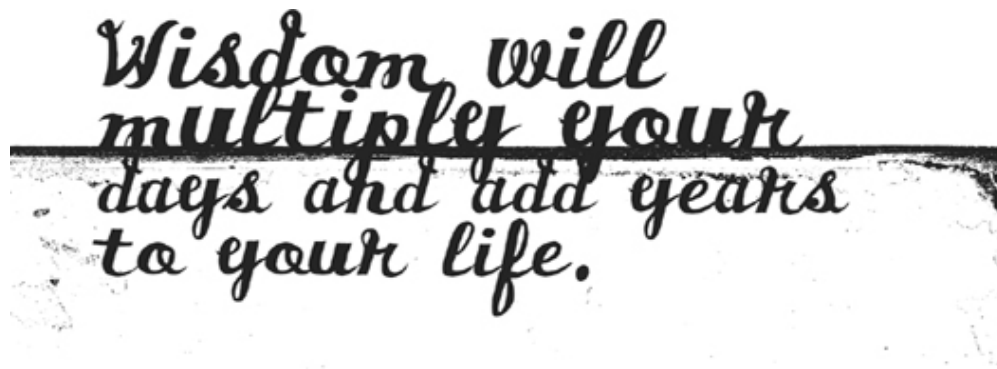 Wisdom will
multiply your
days and add years
to your life.